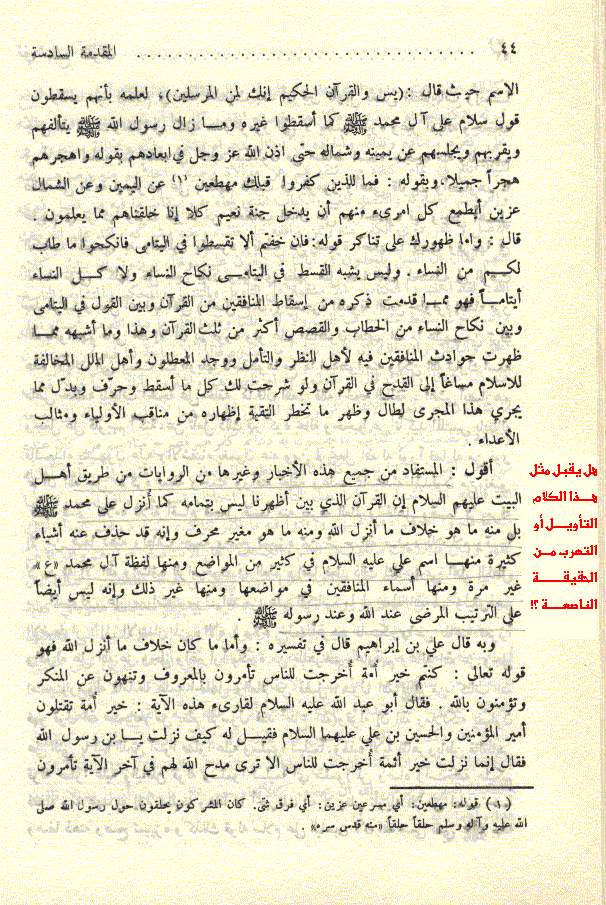 ٤٤ ................................ المقدمة السادسة
الاسم حيث قال : (يس والقرآن الحكيم إنك لمن المرسلين)، لعلمه بأنهم يسقطون
قول سلام على آل محمد ﷺ كما أسقطوا غيره وما زال رسول الله ﷺ يتألفهم
ويقربهم ويجلسهم عن يمينه وشماله حتى اذن الله عز وجل في ابعادهم بقوله واهجرهم
هجراً جميلا، وبقوله : فما للذين كفروا قبلك مهطعين (١) عن اليمين وعن الشمال
عزين أيطمع كل امرىء منهم أن يدخل جنة نعيم كلا إنا خلقناهم مما يعلمون .
قال : واما ظهورك على تناكر قوله : فان خفتم ألا تقسطوا في اليتامى فانكحوا ما طاب
لكم من النساء . وليس يشبه القسط في اليتامى نكاح النساء ولا كل النساء
أيتاماً فهو مما قدمت ذكره من إسقاط المنافقين من القرآن وبين القول في اليتامى
وبين نكاح النساء من الخطاب والقصص أكثر من ثلث القرآن وهذا وما أشبهه مما
ظهرت حوادث المنافقين فيه لأهل النظر والتأمل ووجد المعطلون وأهل الملل المخالفة
للاسلام مساغاً إلى القدح في القرآن ولو شرحت لك كل ما أسقط وحرّف وبدّل مما
يجري هذا المجرى لطال وظهر ما تحظر التقية إظهاره من مناقب الأولياء ومثالب
الأعداء .
أقول : المستفاد من جميع هذه الأخبار وغيرها من الروايات من طريق أهل
البيت عليهم السلام إن القرآن الذي بين أظهرنا ليس بتمامه كما أُنزل على محمد ﷺ
بل منه ما هو خلاف ما أنزل الله ومنه ما هو مغير محرف وإنه قد حذف عنه أشياء
كثيرة منها اسم علي عليه السلام في كثير من المواضع ومنها لفظة آل محمد «ع»
غير مرة ومنها أسماء المنافقين في مواضعها ومنها غير ذلك وإنه ليس أيضاً
على الترتيب المرضي عند الله وعند رسوله ﷺ .
وبه قال علي بن إبراهيم قال في تفسيره : وأما ما كان خلاف ما أنزل الله فهو
قوله تعالى : كنتم خير أمة أُخرجت للناس تأمرون بالمعروف وتنهون عن المنكر
وتؤمنون بالله . فقال أبو عبد الله عليه السلام لقارىء هذه الآية : خير أمة تقتلون
أمير المؤمنين والحسين بن علي عليهما السلام فقيل له كيف نزلت يا بن رسول الله
فقال إنما نزلت خير أئمة أُخرجت للناس الا ترى مدح الله لهم في آخر الآية تأمرون
(١) قوله: مهطعين: أي مسرعين عزين: أي فرق شتى. كان المشركون يحلقون حول رسول الله صلى
الله عليه وآله وسلم حلقاً حلقاً «منه قدس سره» .
هل يقبل مثل
هذا الكلام
التأويل أو
التهرب من
الحقيقة
الناصعة ؟!